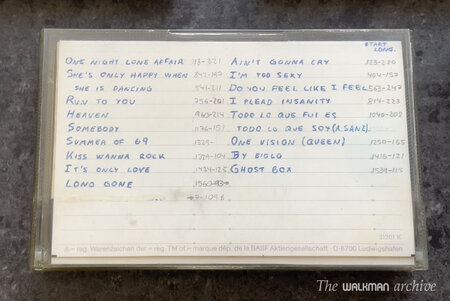 START
LONG.
ONE NIGHT LONE AFFAIR 13-321
SHE'S ONLY HAPPY WHEN
SHE IS DANCING 541-211
RUN TO YOU 756-201
HEAVEN 960-214
SOMEBODY
SUMMER OF 69 1325-
KISS WANNA ROCK
IT'S ONLY LOVE 1434-125
LONG GONE
AIN'T GONNA CRY 123-280
I'M TOO SEXY 404-157
DO YOU FEEL LIKE I FEEL 563-247
I PLEAD INSANITY 814-223
TODO LO QUE FUI ES 1040-202
TODO LO QUE SOY (A. SANZ)
ONE VISION (QUEEN) 1250-165
BY EIOLO 1416-121
GHOST BOX 1539-115
31201 K
® = reg. Warenzeichen der = reg. TM of = marque dép. de la BASF Aktiengesellschaft · D-6700 Ludwigshafen
The WALKMAN archive